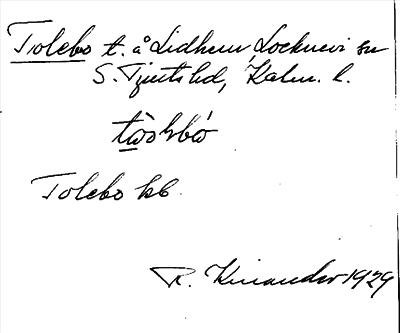 Tolebo t. å Lidhem, Locknevi sn
S. Tjusts hd, Kalm. l.
Tolebo kb
R. Kinander 1929